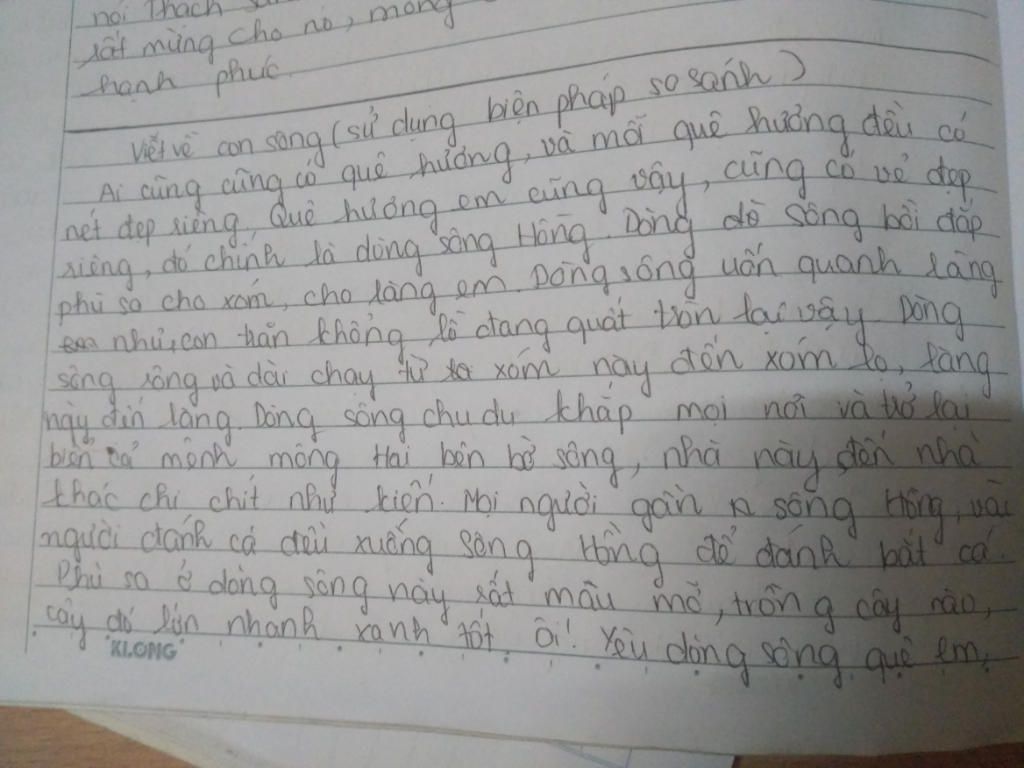 nói Thạch
rất mừng cho nó, mong
hạnh phúc.
Viết về con sông (sử dụng biện pháp so sánh)
Ai cũng cũng có quê hương, và mỗi quê hương đều có
nét đẹp riêng. Quê hương em cũng vậy, cũng có vẻ đẹp
riêng, đó chính là dòng sông Hồng. Dòng đò sông bồi đắp
phù sa cho xóm, cho làng em. Dòng sông uốn quanh làng
như con trăn khổng lồ đang quát tròn lại vậy Dòng
sông rông và dài chay từ xóm này đến xóm lo, làng
này đến làng. Dòng sông chu du khắp mọi nơi và trở lại
biển cả mênh mông Hai bên bờ sông, nhà này đến nhà
khác chi chít như kiến. Mọi người gần sông Hồng, vài
người đánh cá đều xuống sông Hồng để đánh bắt cá.
Phù sa ở dòng sông này rất mầu mỡ, trồng cây nào,
cây đó lớn nhanh xanh tốt. Ôi! Yêu dòng sông quê em.
KLONG